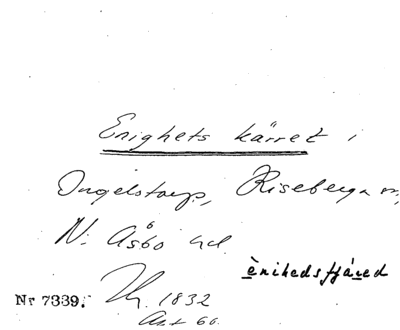 Enighets kärret i
Ingelstorp, Riseberga sn,
N. Åsbo hd.
ènihedsfjáred
Nr 7339. Th. 1832
Akt 60.